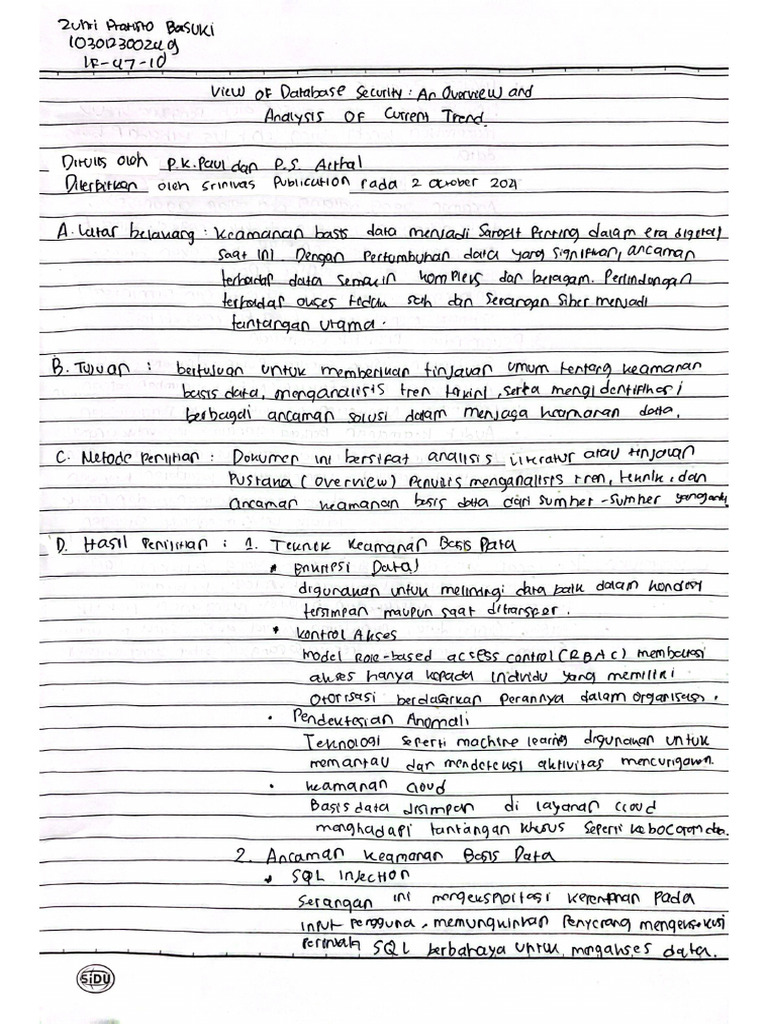 Zuhri Pratisto Basuki
103012300249
IF-47-10
View OF Database Security: An Overview and
Analysis OF Current Trend.
Ditulis oleh P.K. Paul dan P.S. Aithal
Diterbitkan oleh Srinivas Publication pada 2 October 2021
A. Latar belakang : Keamanan basis data menjadi Sangat Penting dalam era digital
saat ini. Dengan Pertumbuhan data yang signifikan, ancaman
terhadap data semakin kompleks dan beragam. Perlindungan
terhadap akses tidak sah dan Serangan Siber menjadi
tantangan utama.
B. Tujuan : bertujuan untuk memberikan tinjauan umum tentang keamanan
basis data, menganalisis tren terkini, serta mengidentifikasi
berbagai ancaman solusi dalam menjaga keamanan data.
C. Metode Penilitian : Dokumen ini bersifat analisis literatur atau tinjauan
Pustaka (overview) Penulis menganalisis tren, teknik, dan
ancaman keamanan basis data dari sumber-sumber yang ada
D. Hasil Penilitian : 1. Teknik Keamanan Basis Data
• Enkripsi Data
digunakan untuk melindungi data baik dalam kondisi
tersimpan maupun saat ditransper.
• Kontrol Akses
Model Role-based access control (RBAC) membatasi
akses hanya kepada individu yang memiliki
Otorisasi berdasarkan perannya dalam organisasi.
• Pendeteksian Anomali
Teknologi seperti machine learing digunakan untuk
memantau dan mendeteksi aktivitas mencurigakan.
• Keamanan cloud
Basis data disimpan di layanan cloud
menghadapi tantangan khusus seperti kebocoran data.
2. Ancaman Keamanan Basis Data
• SQL Injection
Serangan ini mengeksploitasi kerentanan pada
input pengguna, memungkinkan penyerang mengeksekusi
perintah SQL berbahaya untuk mengakses data.
SiDU